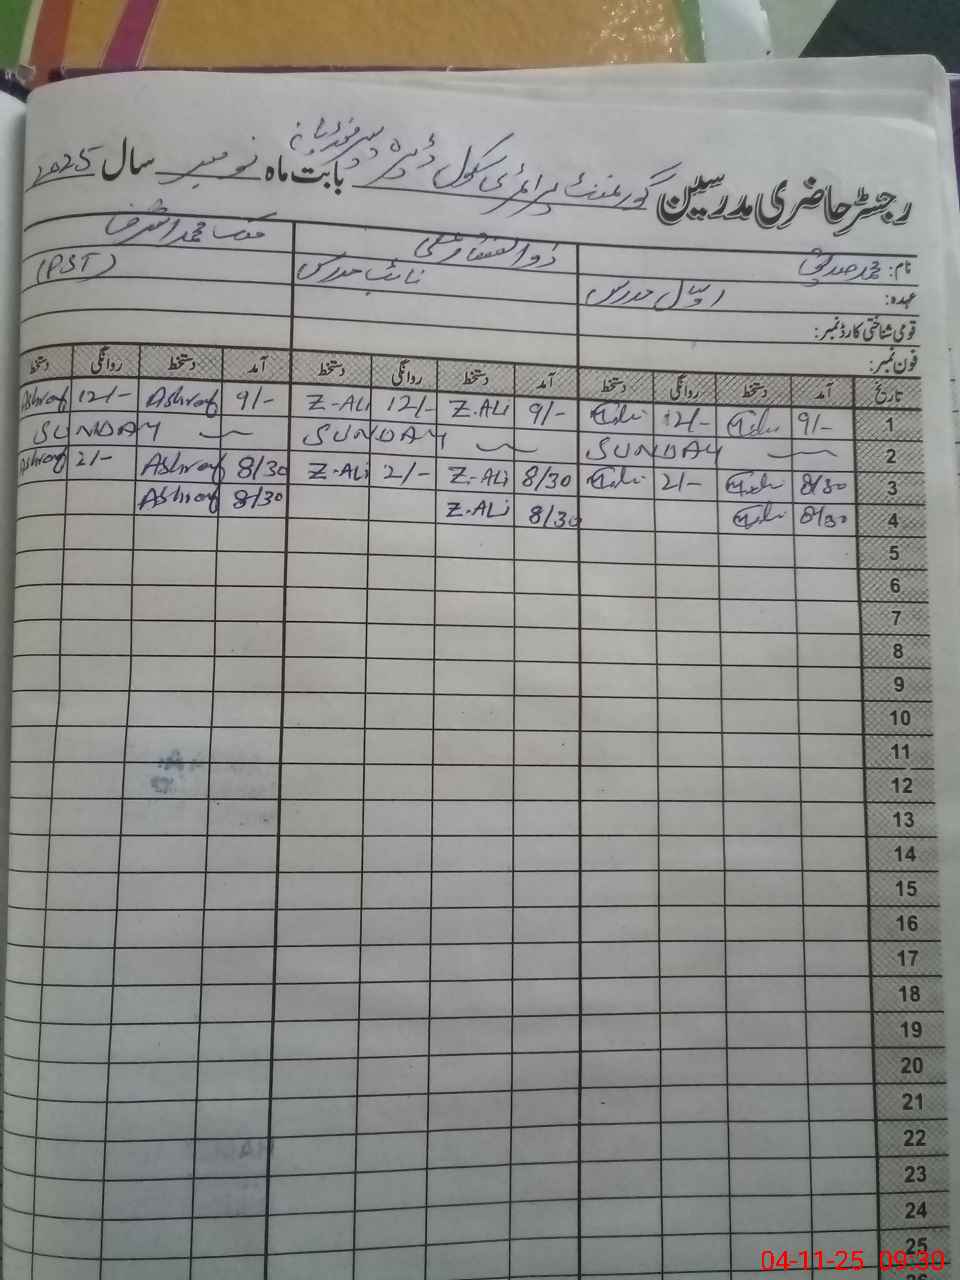 رجسٹر حاضری مدرسین گورنمنٹ پرائمری سکول ڈیرہ بابت ماہ نومبر سال 2025
نام: محمد صدیق ذوالفقار علی ملک محمد اشرف
عہدہ: اول مدرس نائب مدرس (PST)
قومی شناختی کارڈ نمبر:
فون نمبر:
تاریخ آمد دستخط روانگی دستخط آمد دستخط روانگی دستخط آمد دستخط روانگی دستخط
1 9/- 12/- 9/- Z.ALI 12/- Z-ALI 9/- Ashraf 12/- Ashraf
2 SUNDAY SUNDAY SUNDAY
3 8/30 2/- 8/30 Z-ALi 2/- Z-ALi 8/30 Ashraf 2/- Ashraf
4 8/30 8/30 Z.ALi 8/30 Ashraf
5
6
7
8
9
10
11
12
13
14
15
16
17
18
19
20
21
22
23
24
25
04-11-25 09:30